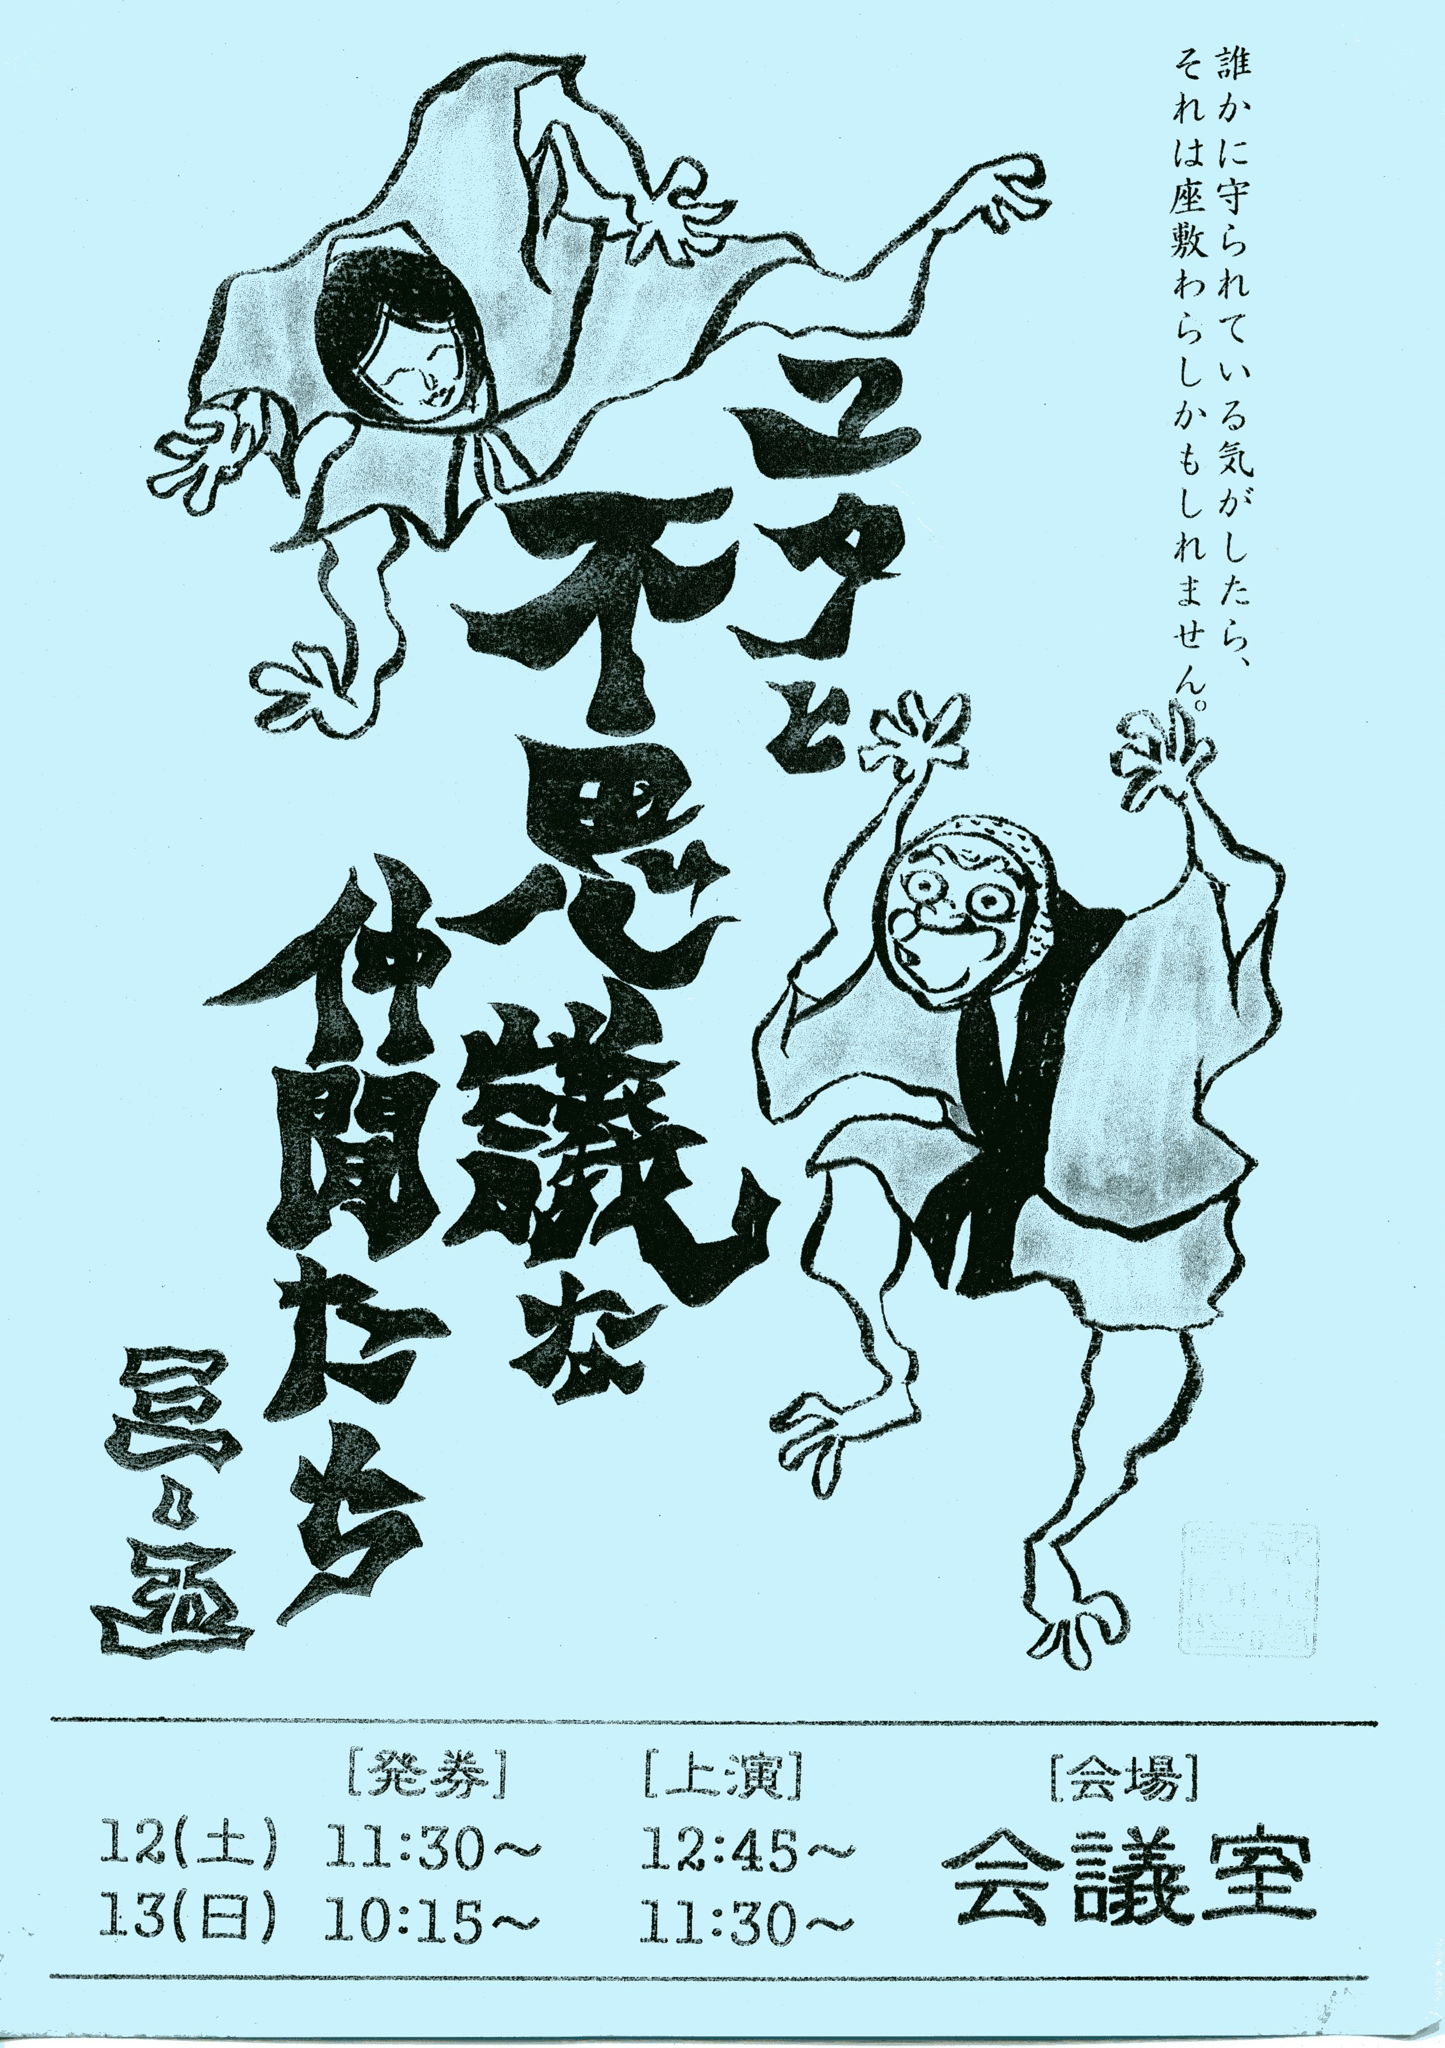 誰かに守られている気がしたら、
それは座敷わらしかもしれません。
ユタと
不思議な
仲間たち
[発券] [上演] [会場]
12(土) 11:30～ 12:45～ 会議室
13(日) 10:15～ 11:30～